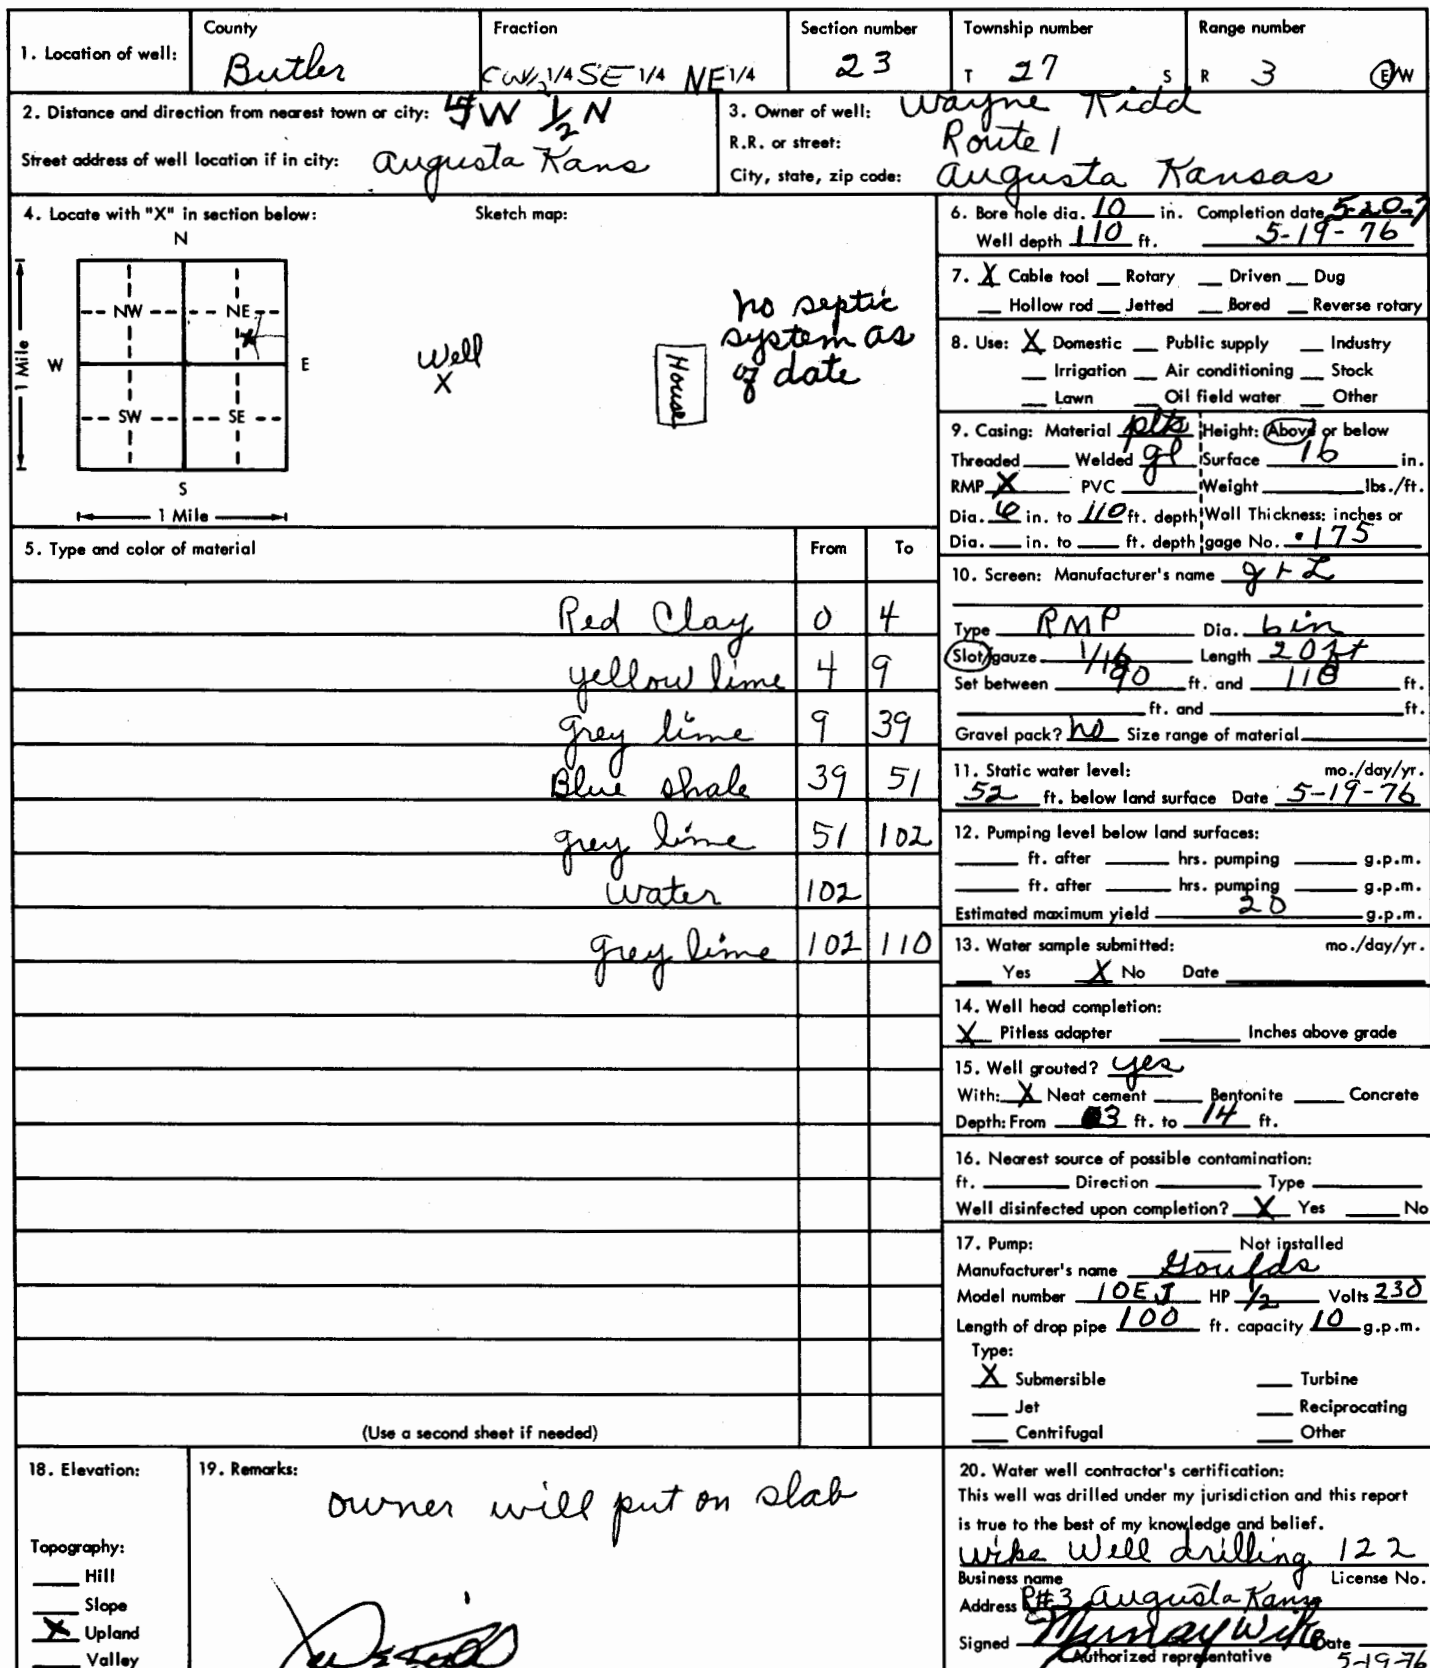 1. Location of well: County Butler Fraction CW/2 1/4 SE 1/4 NE 1/4 Section number 23 Township number T 27 S Range number R 3 E/W
2. Distance and direction from nearest town or city: W 1/2 N
Street address of well location if in city: Augusta Kans
3. Owner of well: Wayne Kidd
R.R. or street: Route 1
City, state, zip code: Augusta Kansas
4. Locate with "X" in section below: Sketch map:
N
NW NE
W E
SW SE
S
1 Mile
1 Mile
Well
X
House
no septic
system as
of date
5. Type and color of material From To
Red Clay 0 4
yellow lime 4 9
grey lime 9 39
Blue shale 39 51
grey lime 51 102
water 102
grey lime 102 110
(Use a second sheet if needed)
6. Bore hole dia. 10 in. Completion date 5-20-7
Well depth 110 ft. 5-19-76
7. X Cable tool __ Rotary __ Driven __ Dug
__ Hollow rod __ Jetted __ Bored __ Reverse rotary
8. Use: X Domestic __ Public supply __ Industry
__ Irrigation __ Air conditioning __ Stock
__ Lawn __ Oil field water __ Other
9. Casing: Material plts Height: Above or below
Threaded __ Welded gl Surface 16 in.
RMP X PVC __ Weight __ lbs./ft.
Dia. 6 in. to 110 ft. depth Wall Thickness: inches or
Dia. __ in. to __ ft. depth gage No. .175
10. Screen: Manufacturer's name g + L
Type RMP Dia. 6 in
Slot/gauze 1/16 Length 20 ft
Set between 90 ft. and 110 ft.
__ ft. and __ ft.
Gravel pack? no Size range of material __
11. Static water level: mo./day/yr.
52 ft. below land surface Date 5-19-76
12. Pumping level below land surfaces:
__ ft. after __ hrs. pumping __ g.p.m.
__ ft. after __ hrs. pumping __ g.p.m.
Estimated maximum yield 20 g.p.m.
13. Water sample submitted: mo./day/yr.
__ Yes X No Date __
14. Well head completion:
X Pitless adapter __ Inches above grade
15. Well grouted? yes
With: X Neat cement __ Bentonite __ Concrete
Depth: From 3 ft. to 14 ft.
16. Nearest source of possible contamination:
ft. __ Direction __ Type __
Well disinfected upon completion? X Yes __ No
17. Pump: __ Not installed
Manufacturer's name Goulds
Model number 10EJ HP 1/2 Volts 230
Length of drop pipe 100 ft. capacity 10 g.p.m.
Type:
X Submersible __ Turbine
__ Jet __ Reciprocating
__ Centrifugal __ Other
18. Elevation:
Topography:
__ Hill
__ Slope
X Upland
__ Valley
19. Remarks:
owner will put on slab
20. Water well contractor's certification:
This well was drilled under my jurisdiction and this report
is true to the best of my knowledge and belief.
Wike Well drilling 122
Business name License No.
Address R#3 Augusta Kans
Signed Murray Wike Date
Authorized representative 5-19-76